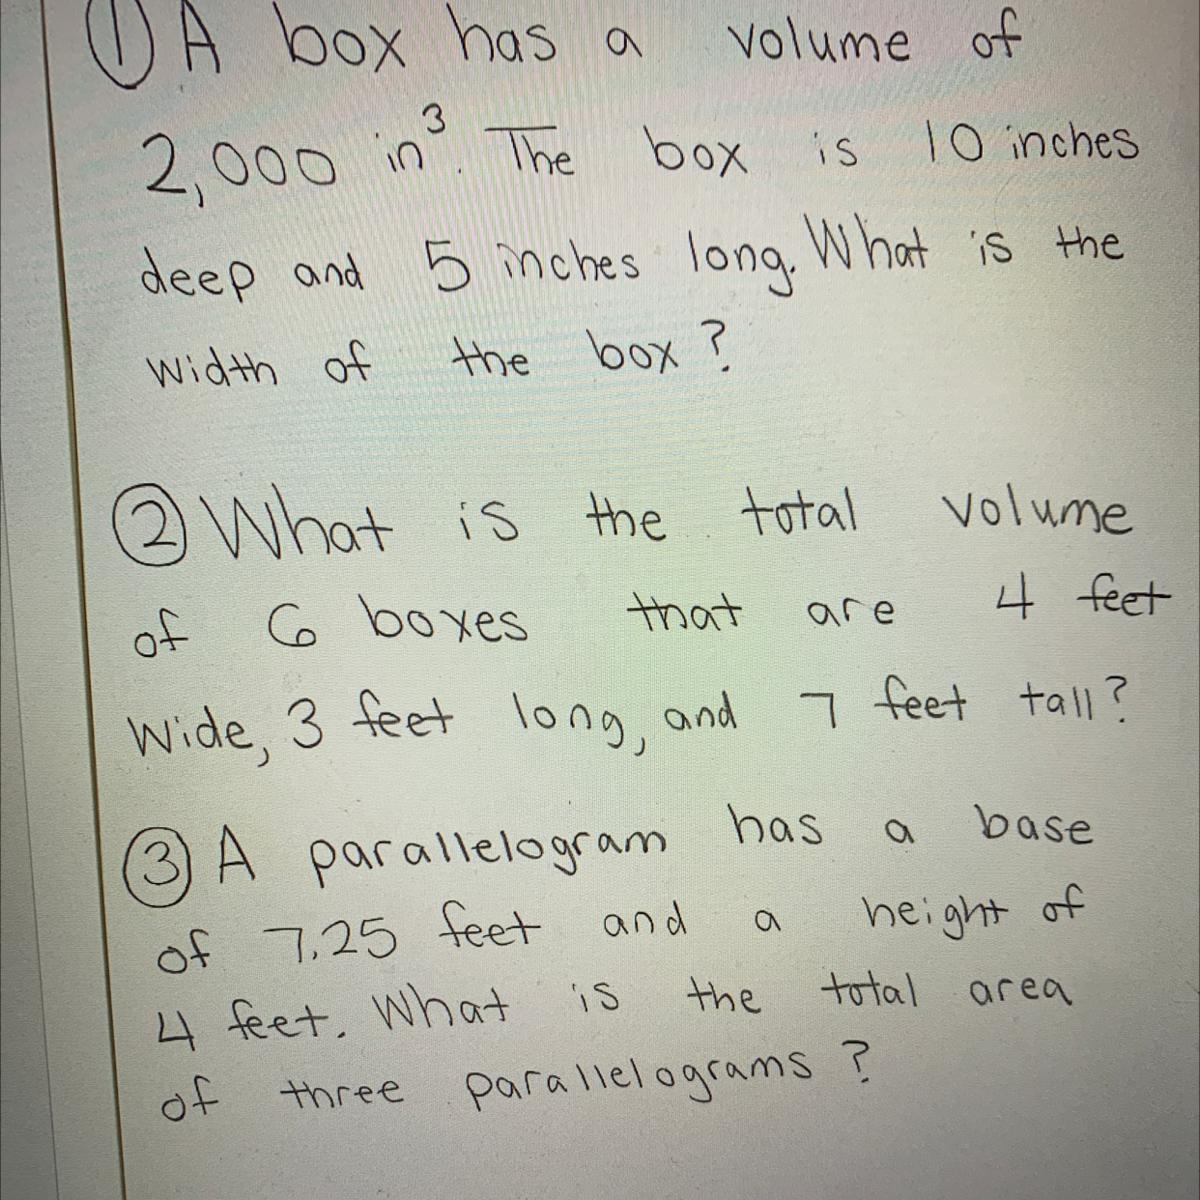 ① A box has a volume of
2,000 in³. The box is 10 inches
deep and 5 inches long. What is the
width of the box?
② What is the total volume
of 6 boxes that are 4 feet
wide, 3 feet long, and 7 feet tall?
③ A parallelogram has a base
of 7.25 feet and a height of
4 feet. What is the total area
of three parallelograms?